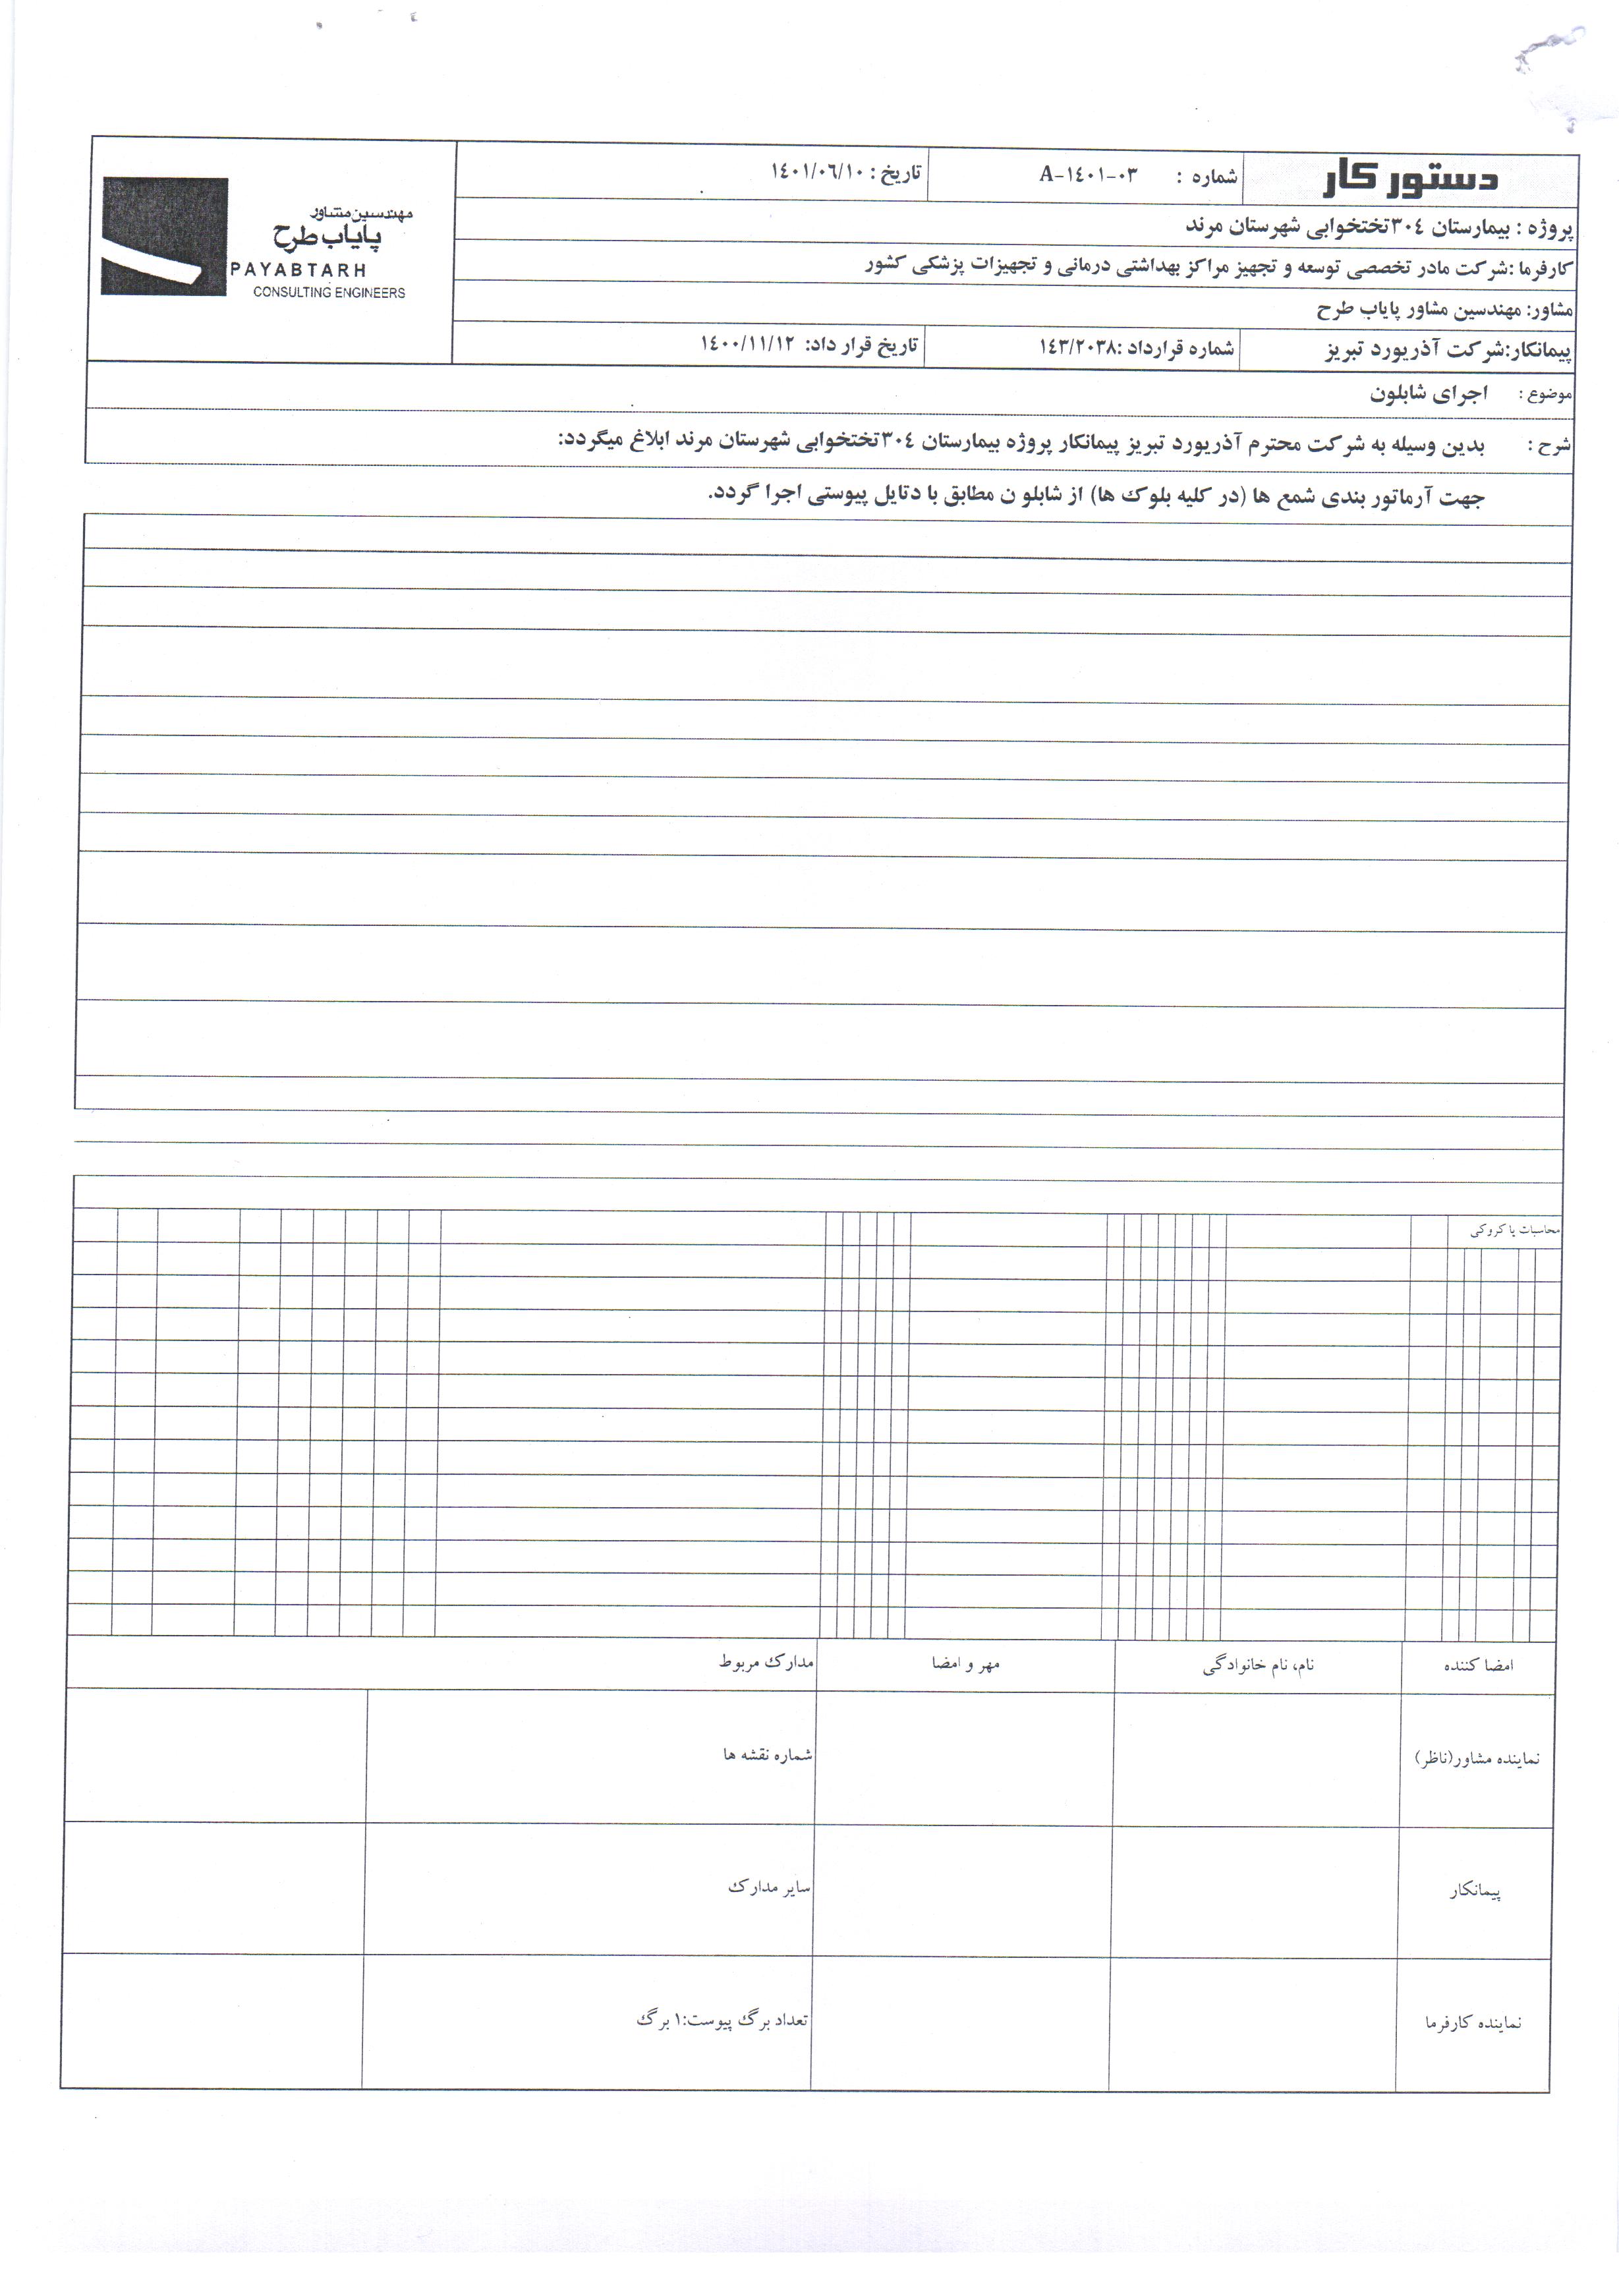 دستور کار
شماره : A-١٤٠١-٠٣
تاریخ : ١٤٠١/٠٦/١٠
مهندسین مشاور
پایاب طرح
PAYABTARH
CONSULTING ENGINEERS
پروژه : بیمارستان ٣٠٤تختخوابی شهرستان مرند
کارفرما :شرکت مادر تخصصی توسعه و تجهیز مراکز بهداشتی درمانی و تجهیزات پزشکی کشور
مشاور: مهندسین مشاور پایاب طرح
پیمانکار:شرکت آذریورد تبریز
شماره قرارداد :١٤٣/٢٠٣٨
تاریخ قرار داد: ١٤٠٠/١١/١٢
موضوع : اجرای شابلون
شرح : بدین وسیله به شرکت محترم آذریورد تبریز پیمانکار پروژه بیمارستان ٣٠٤تختخوابی شهرستان مرند ابلاغ میگردد:
جهت آرماتور بندی شمع ها (در کلیه بلوک ها) از شابلو ن مطابق با دتایل پیوستی اجرا گردد.
محاسبات یا کروکی
امضا کننده
نام، نام خانوادگی
مهر و امضا
مدارک مربوط
نماینده مشاور(ناظر)
شماره نقشه ها
پیمانکار
سایر مدارک
نماینده کارفرما
تعداد برگ پیوست:١ برگ